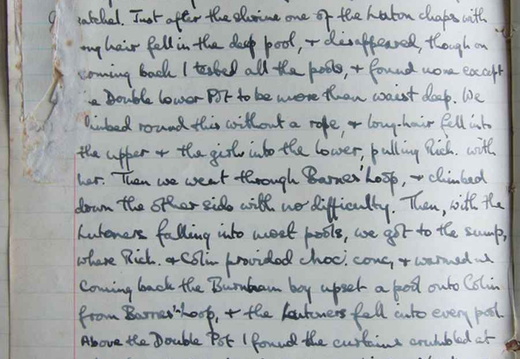 satchel. Just after the shrine one of the Luton chaps with
my hair fell in the deep pool, + disappeared, though on
coming back I tested all the pools, + found none except
e Double lower Pot to be more than waist deep. We
limbed round this without a rope, + long-hair fell into
the upper + the girls into the lower, pulling Rich. with
her. Then we went through Barnes' Loop, + climbed
down the other side with no difficulty. Then, with the
Lutoners falling into most pools, we got to the sump,
where Rich. + Colin provided choc. conc, + warmed us
Coming back the Burnham boy upset a pool onto Colin
from Barnes' Loop, + the Lutoners fell into every pool.
Above the Double Pot I found the curtains crumbled at